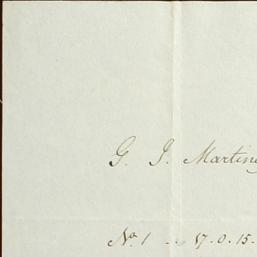 G. J. Martin
No. 1 ~ 17.0.15.